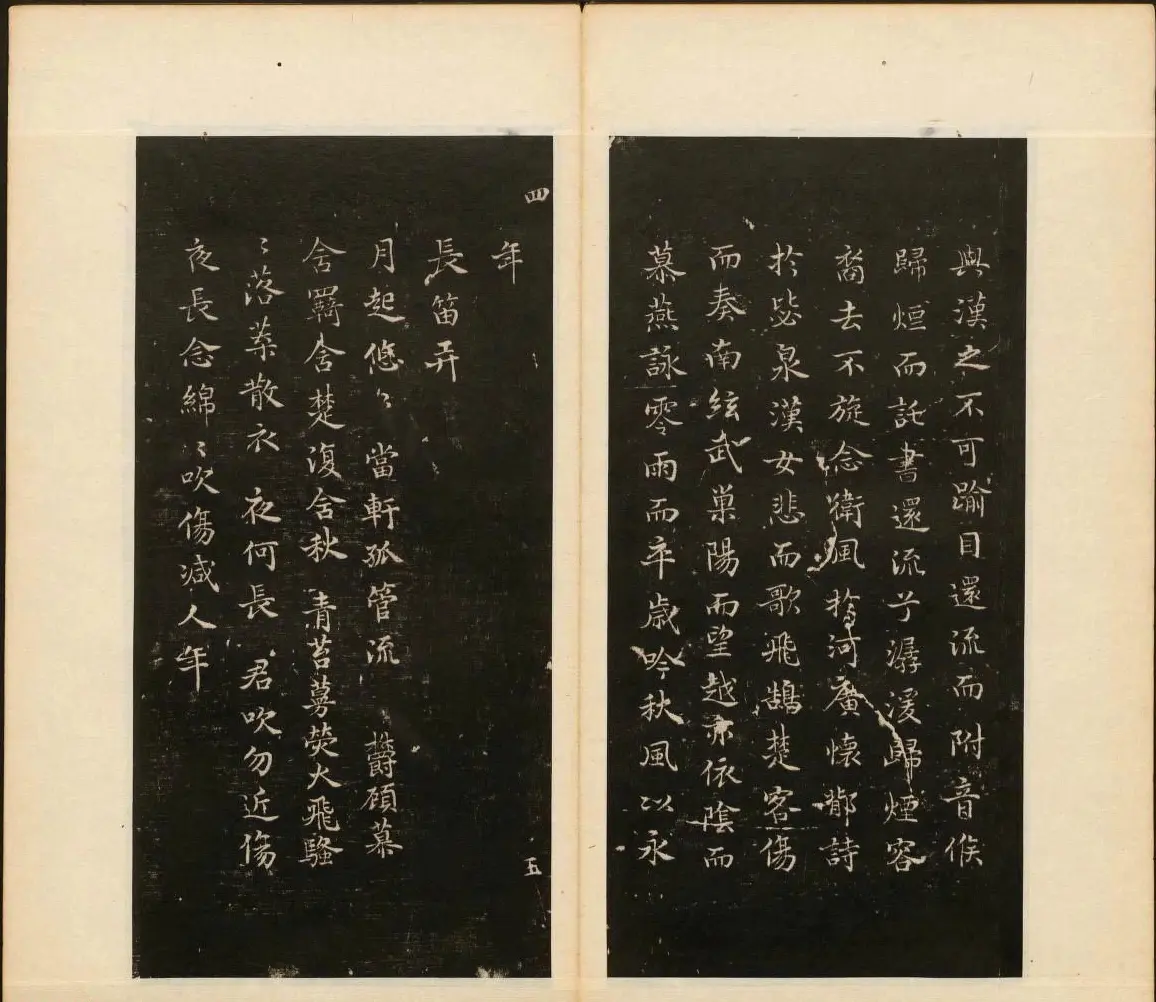 與漢之不可踰目還流而附音候
歸煙而託書還流兮潺湲歸煙容
裔去不旋念衛風於河廣懷邶詩
於毖泉漢女悲而歌飛鵠楚客傷
而奏南絃武巢陽而望越亦依陰而
慕燕詠零雨而卒歲吟秋風以永
年
四
五
長笛弄
月起悠〻當軒孤管流欝顧慕
含羇含楚復含秋青苔蔓熒火飛騷
〻落葉散衣夜何長君吹勿近傷
夜長念綿〻吹傷減人年